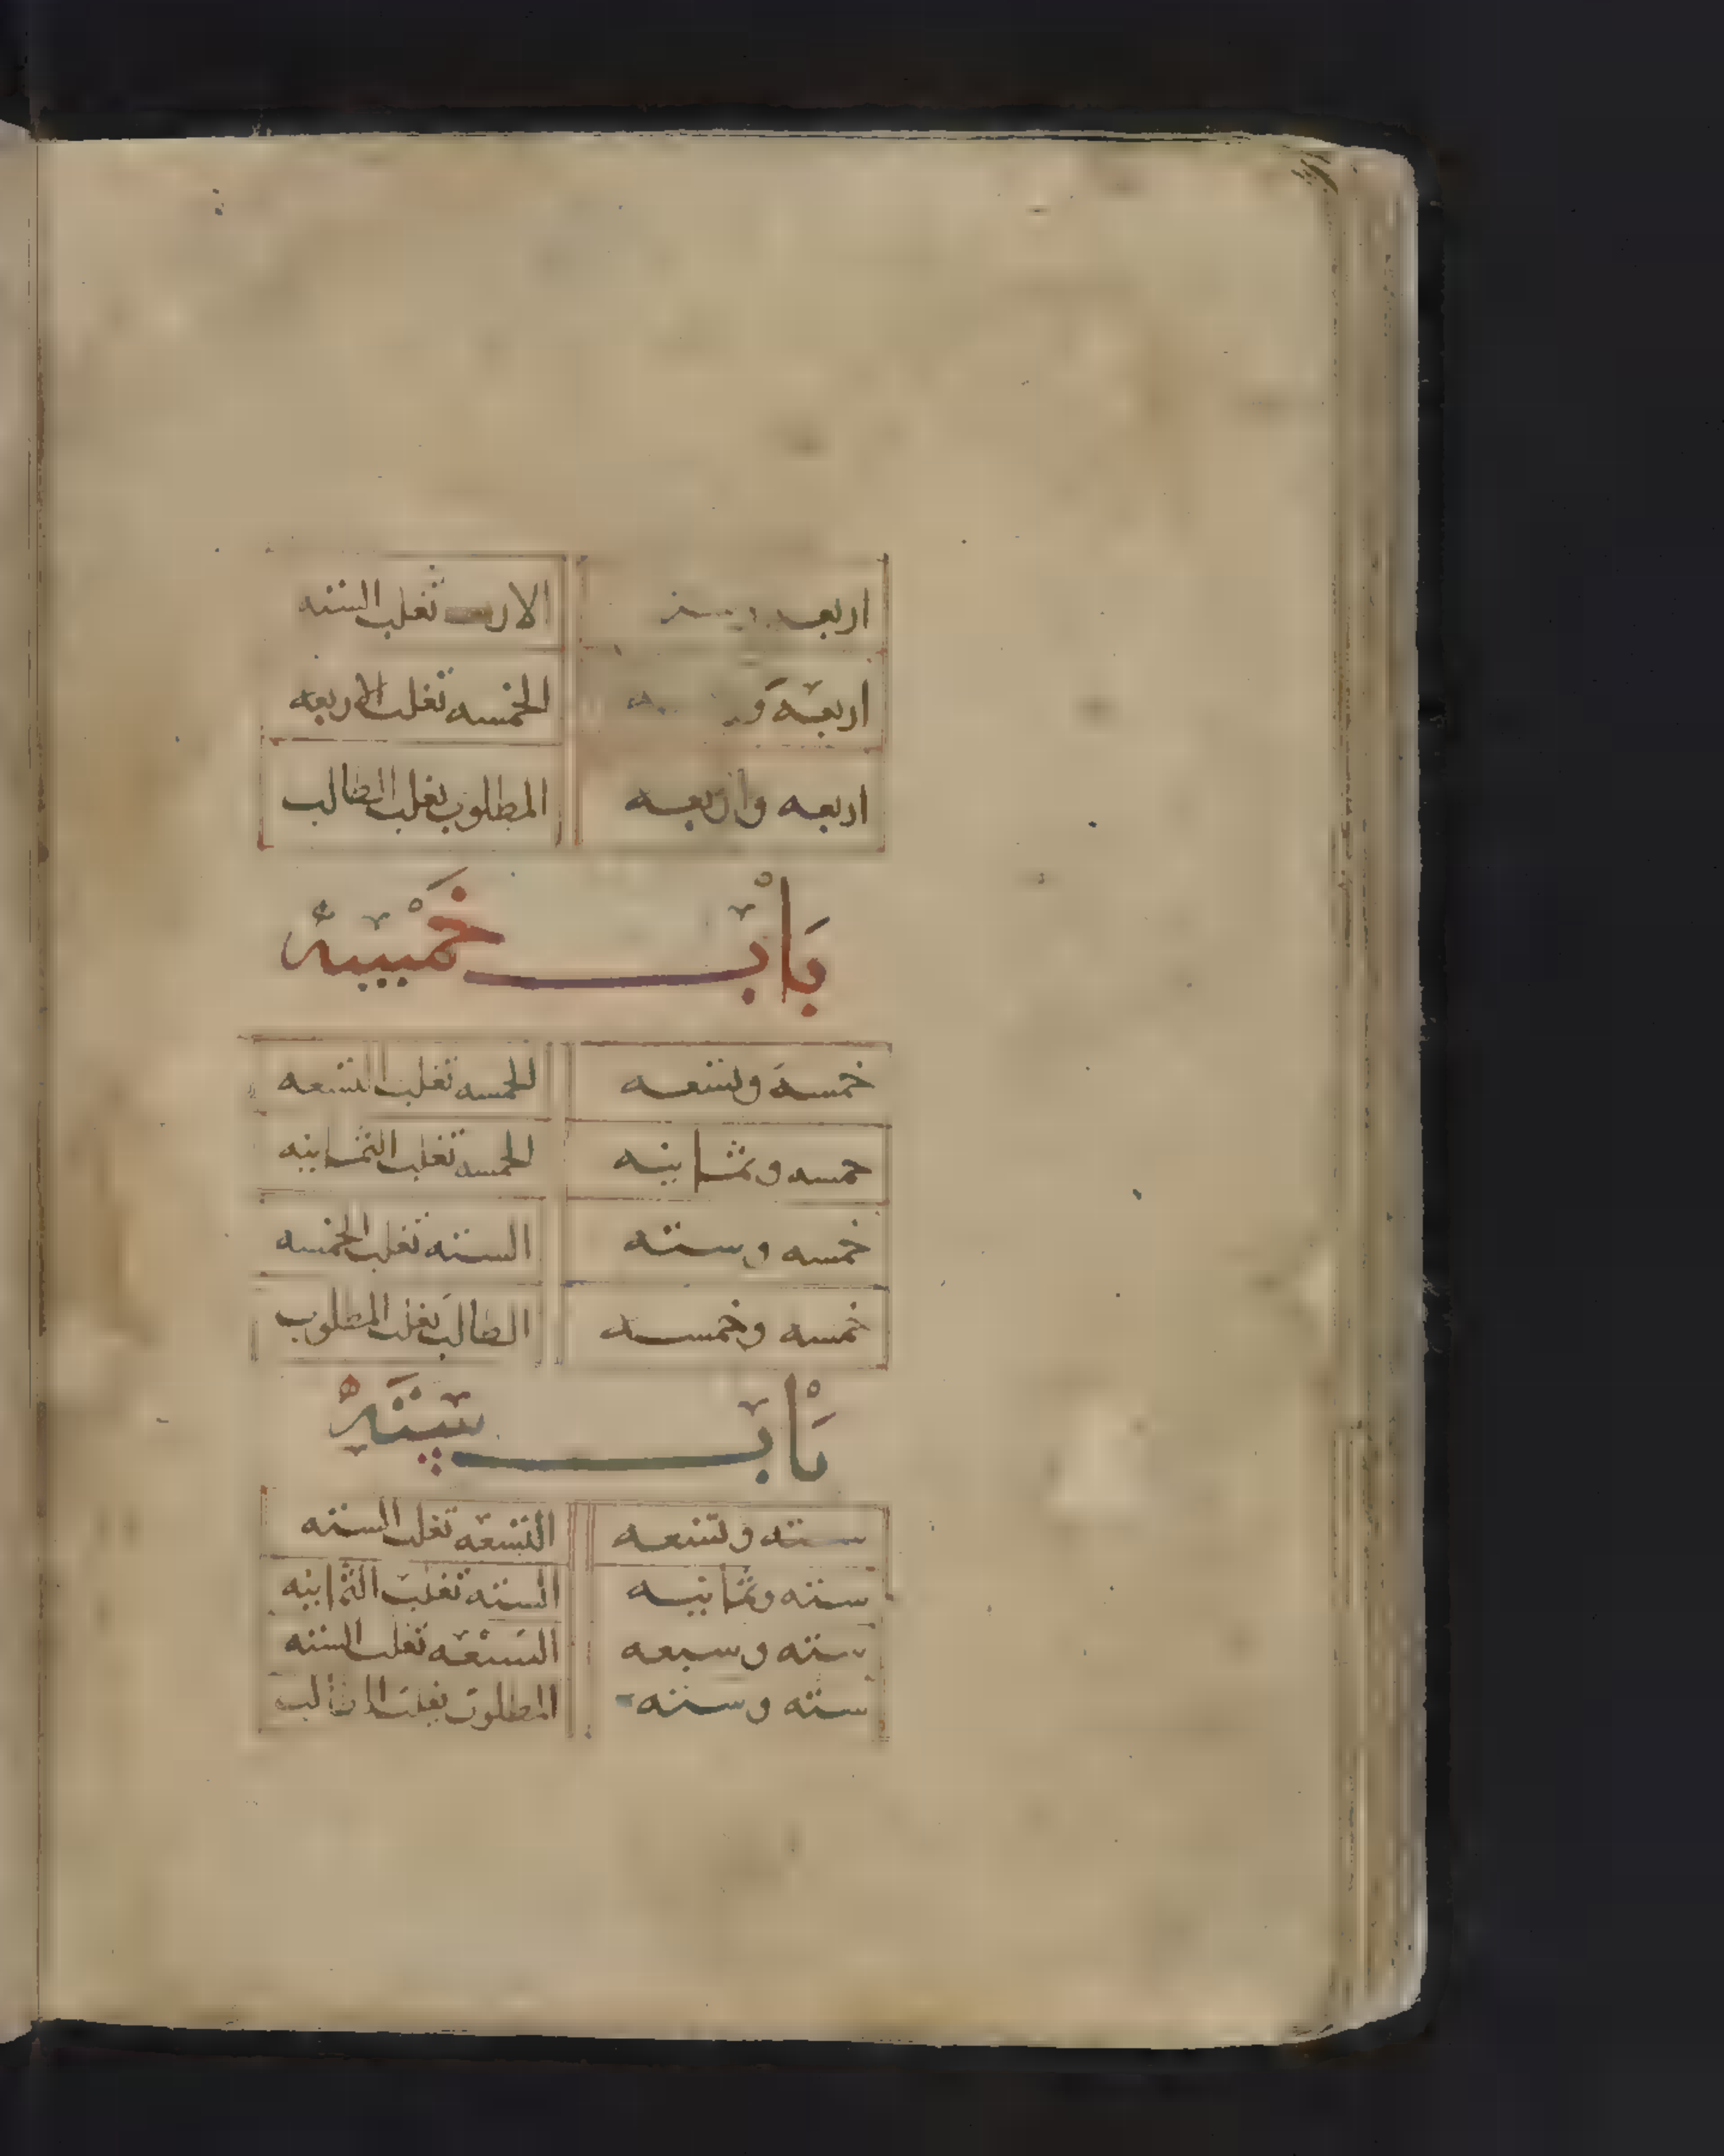 اربعه الاربعه تغلب الستته
اربعَه وَ الخمسه تغلب الاربعه
اربعه واربعه المطلوب يغلب الطالب
بَابْ خَمْسِه
خمسهَ وتسعه الخمسه تغلب التسعه
خمسه وثمانيه الخمسه تغلب الثمانيه
خمسه وسته السته تغلب الخمسه
خمسه وخمسه الطالب يغلب المطلوب
بَابْ سِتَّه
سته وتسعه التسعه تغلب السته
سته وثمانيه السته تغلب الثمانيه
سته وسبعه السبعه تغلب السته
سته وسته المطلوب يغلب الطالب